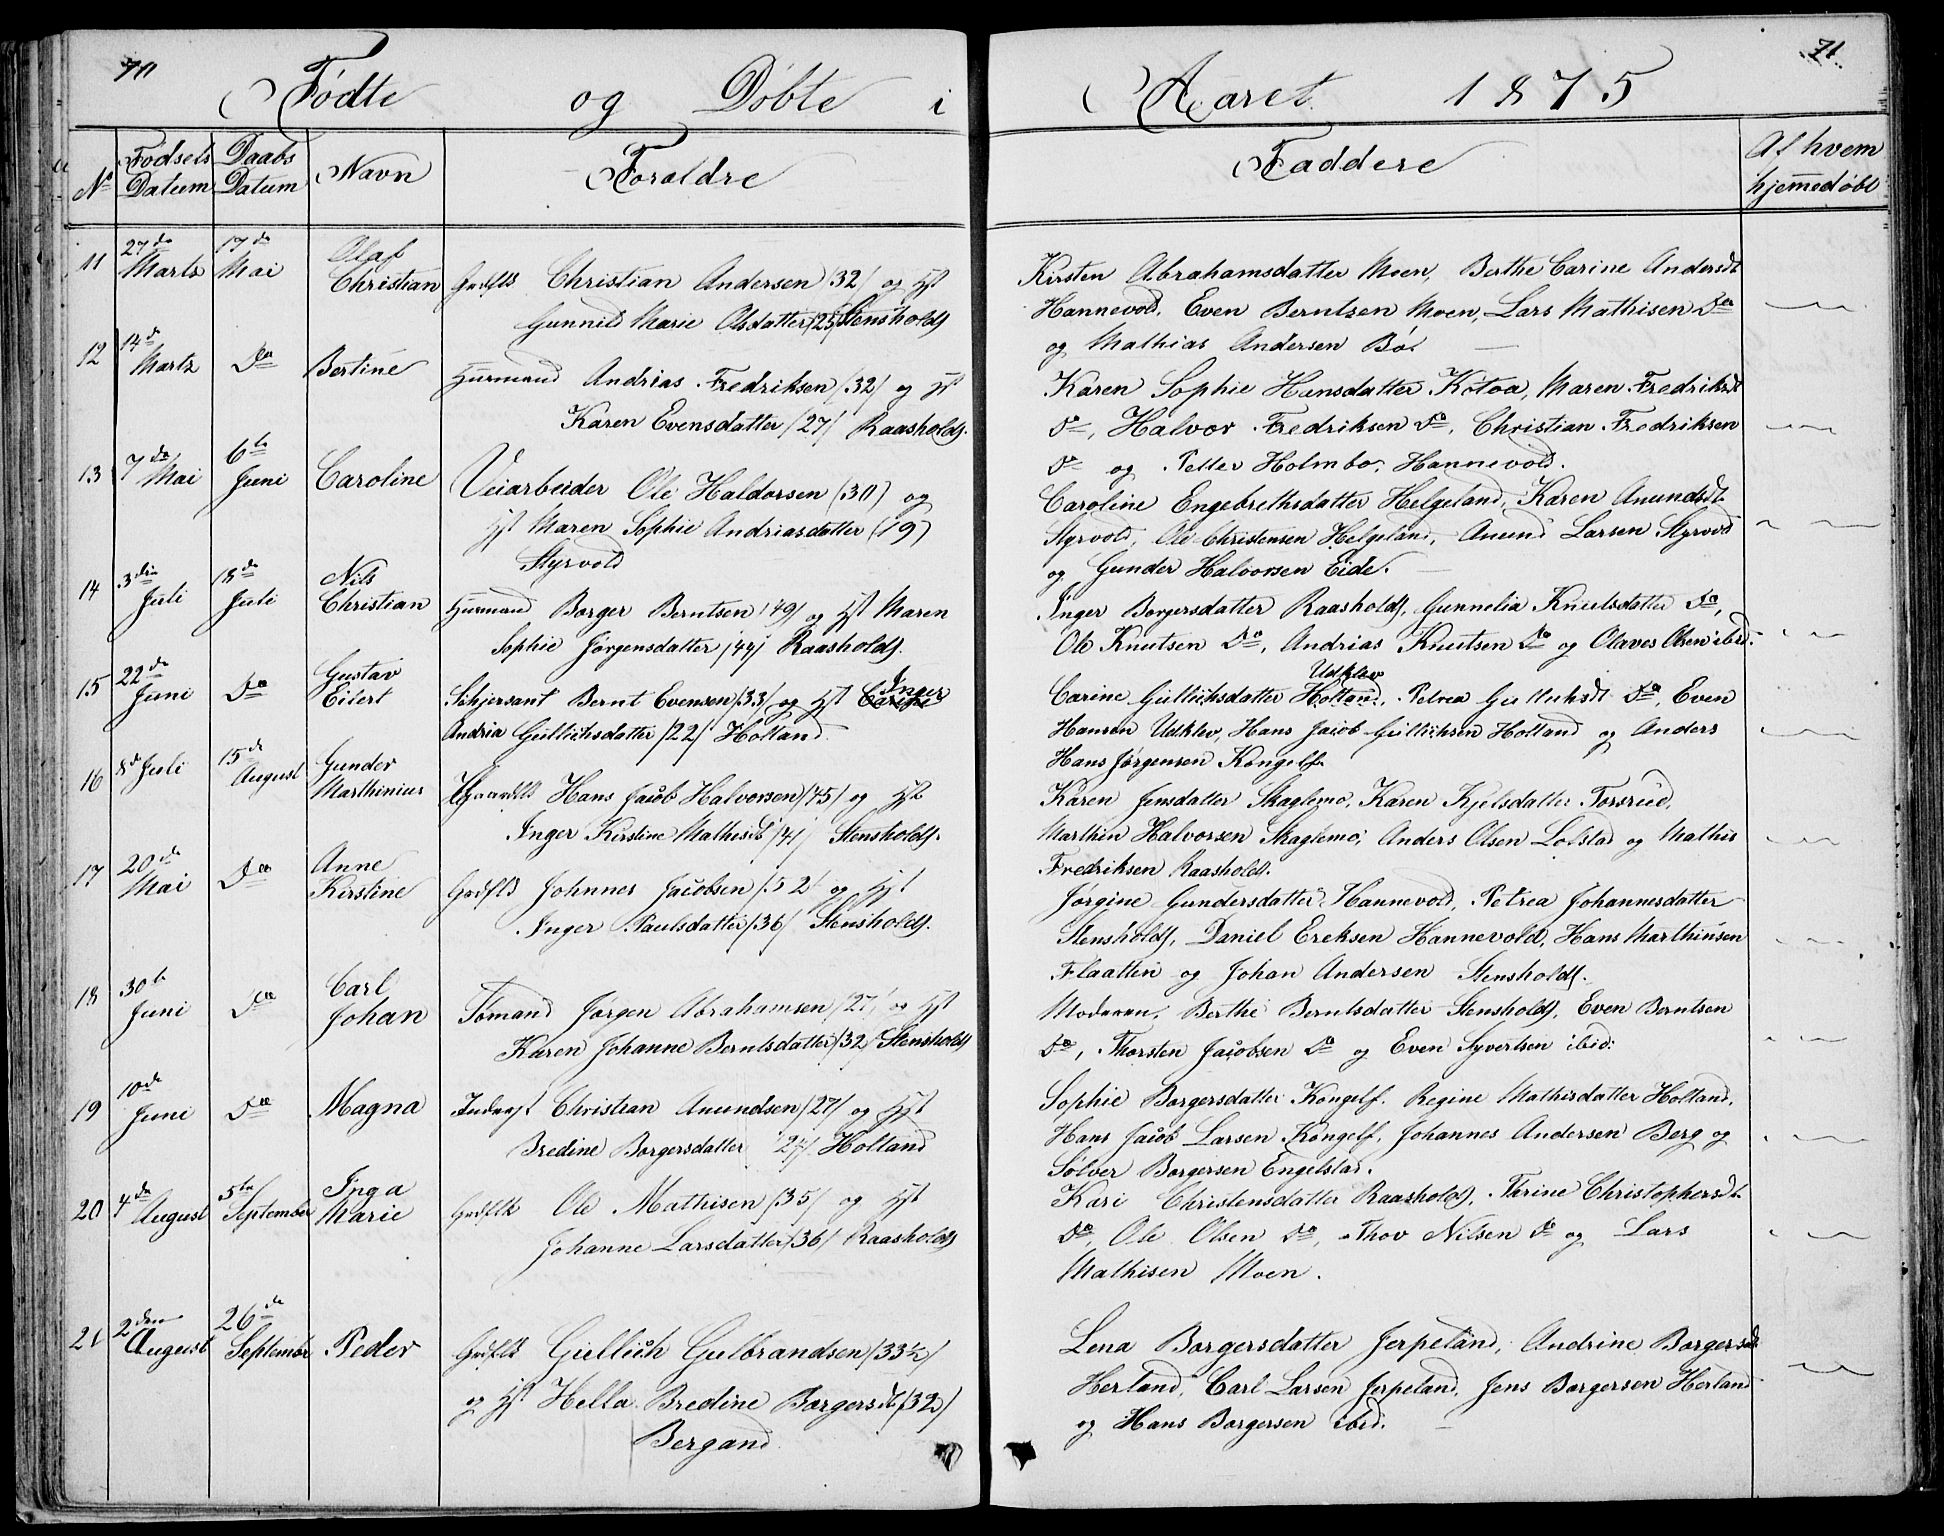 70
Fødte og Døbte i
Aaret 1875
71.
No
Fødsels Datum
Daabs Datum
Navn
Foreldre
Faddere
Af hvem hjemmedøbt
11 27de Marts 17de Mai Olaf Christian
Grdflk Christian Andersen /32/ og Hst
Gunnild Marie Olsdatter /25/ Stensholdt
Kirsten Abrahamsdatter Moen, Berthe Carine Andersdt
Hannevold, Even Berntsen Moen, Lars Mathisen Do
og Mathias Andersen Bø.
12 14de Marts Do Bertine
Husmand Andrias Fredriksen /32/ og Hst
Karen Evensdatter /27/ Raasholdt.
Karen Sophie Hansdatter Kotoa, Maren Fredriksdt
Do, Halvor Fredriksen Do, Christian Fredriksen
Do og Petter Holmbo, Hannevold.
13 7de Mai 6te Juni Caroline
Veiarbeider Ole Haldorsen (30) og
Hst Maren Sophie Andriasdatter (19)
Styrvold
Caroline Engebrethsdatter Helgeland, Karen Anundsdt
Styrvold, Ole Christensen Helgeland, Anund Larsen Styrvold
og Gunder Halvorsen Eide.
14 3die Juli 18de Juli Nils Christian
Husmand Borger Berntsen /49/ og Hst Maren
Sophie Jørgensdatter /44/ Raasholdt.
Inger Borgersdatter Raasholdt, Gunnelia Knutsdatter Do,
Ole Knutsen Do, Andrias Knutsen Do og Olaves Olsen ibid.
15 22de Juni Do Gustav Eilert
Schjersant Bernt Evensen /33/ og Hst Carine Inger
Andria Gullichsdatter /22/ Holtand.
Carine Gullichsdatter Holtand Udklev, Petrea Gullichsdt Do, Even
Hansen Udklev, Hans Jacob Gullichsen Holtand og Anders
Hans Jørgensen Kongelf.
16 8de Juli 15de August Gunder Marthinius
Hans Jacob Halvorsen /45/ og Hst
Inger Kirstine Mathisdt /41/ Stensholdt.
Karen Jensdatter Skaglemo, Karen Kjelsdatter Torsrud,
Marthin Halvorsen Skaglemo, Anders Olsen Lofstad og Mathis
Fredriksen Raasholdt.
17 20de Mai Do Anne Kirstine
Grdflk Johnnes Jacobsen /52/ og Hst
Inger Paulsdatter /36/ Stensholdt.
Jørgine Gundersdatter Hannevold, Petrea Johannesdatter
Stensholdt, Daniel Ereksen Hannevold, Hans Marthinsen
Flaatten og Johan Andersen Stensholdt.
18 30te Juni Do Carl Johan
Sømand Jørgen Abrahamsen /27/ og Hst
Karen Johanne Berntsdatter /32/ Stensholdt
Moderen, Berthe Berntsdatter Stensholdt, Even Berntsen
Do, Thorsten Jacobsen Do og Even Syvertsen ibid:
19 10de Juni Do Magna
Inderst Christian Anundsen /27/ og Hst
Bredine Borgersdatter /27/ Holtand
Sophie Borgersdatter Kongelf, Regine Mathisdatter Holtand,
Hans Jacob Larsen Kongelf, Johannes Andersen Berg og
Sølver Borgersen Engelstad.
20 4de August 5te September Inga Marie
Grdflk Ole Mathisen /35/ og Hst
Johanne Larsdatter /36/ Raasholdt
Kari Christensdatter Raasholdt, Thrine Christophersdt
Do, Ole Olsen Do, Thov Nilsen Do og Lars
Mathisen Moen.
21 2den August 26de September Peder
Grdflk Gullich Gulbrandsen /33½/
og Hst Hella Bredine Borgersdt /32/
Bergand
Lena Borgersdatter Jerpeland, Andrine Borgersdt
Herland, Carl Larsen Jerpeland, Jens Borgersen Herland
og Hans Borgersen ibid.